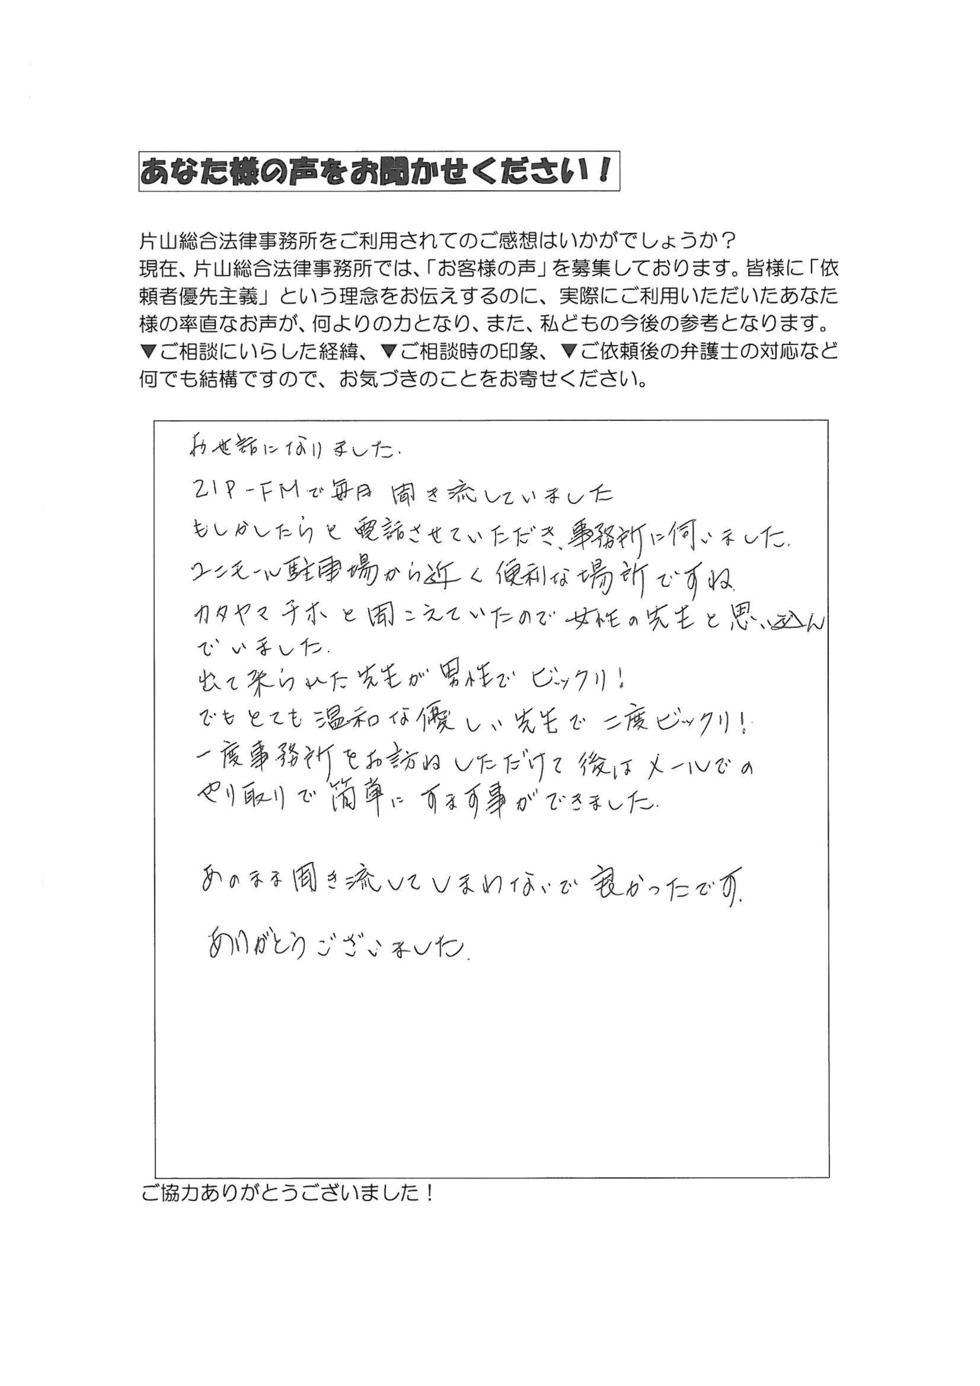 あなた様の声をお聞かせください！
片山総合法律事務所をご利用されてのご感想はいかがでしょうか？
現在、片山総合法律事務所では、「お客様の声」を募集しております。皆様に「依
頼者優先主義」という理念をお伝えするのに、実際にご利用いただいたあなた
様の率直なお声が、何よりの力となり、また、私どもの今後の参考となります。
▼ご相談にいらした経緯、▼ご相談時の印象、▼ご依頼後の弁護士の対応など
何でも結構ですので、お気づきのことをお寄せください。
お世話になりました.
ZIP-FMで毎日 聞き流していました
もしかしたらと 電話させていただき、事務所に伺いました.
ユニモール駐車場から近く便利な場所ですね
カタヤマチホと聞こえていたので女性の先生と思い込ん
でいました.
出て来られた先生が男性でビックリ!
でもとても温和な優しい先生で二度ビックリ!
一度事務所をお訪ねしただけで後はメールでの
やり取りで簡単にすます事ができました.
あのまま聞き流してしまわないで良かったです.
ありがとうございました.
ご協力ありがとうございました！